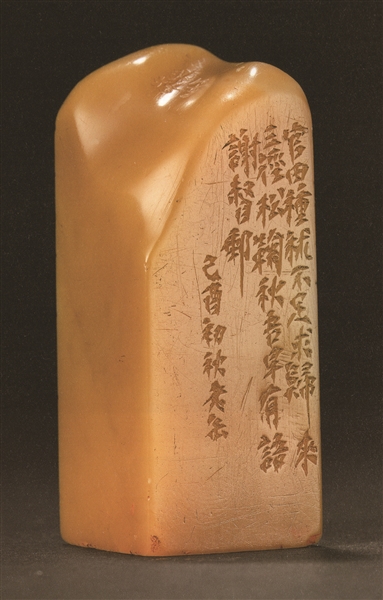 官田種秫不足求歸來
三徑松鞠秋吾早有語
謝督郵
己酉初秋老缶